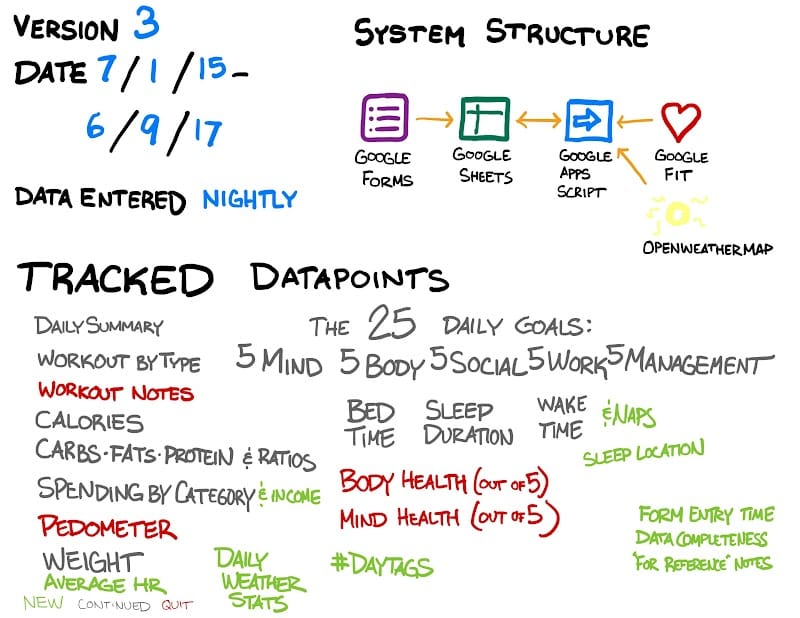 VERSION 3
DATE 7/1/15-
6/9/17
DATA ENTERED NIGHTLY
SYSTEM STRUCTURE
GOOGLE FORMS
GOOGLE SHEETS
GOOGLE APPS SCRIPT
GOOGLE FIT
OPENWEATHERMAP
TRACKED DATAPOINTS
DAILY SUMMARY
WORKOUT BY TYPE
WORKOUT NOTES
CALORIES
CARBS·FATS·PROTEIN & RATIOS
SPENDING BY CATEGORY & INCOME
PEDOMETER
WEIGHT
AVERAGE HR
NEW CONTINUED QUIT
DAILY
WEATHER
STATS
THE 25 DAILY GOALS:
5 MIND 5 BODY 5 SOCIAL 5 WORK 5 MANAGEMENT
BED TIME
SLEEP DURATION
WAKE TIME
& NAPS
SLEEP LOCATION
BODY HEALTH (OUT OF 5)
MIND HEALTH (OUT OF 5)
#DAYTAGS
FORM ENTRY TIME
DATA COMPLETENESS
"FOR REFERENCE" NOTES